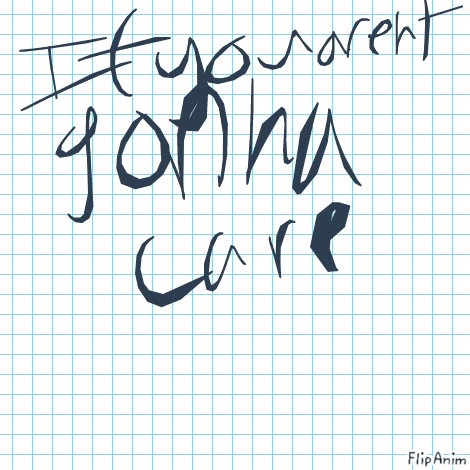 If your arent
gonna
care
FlipAnim